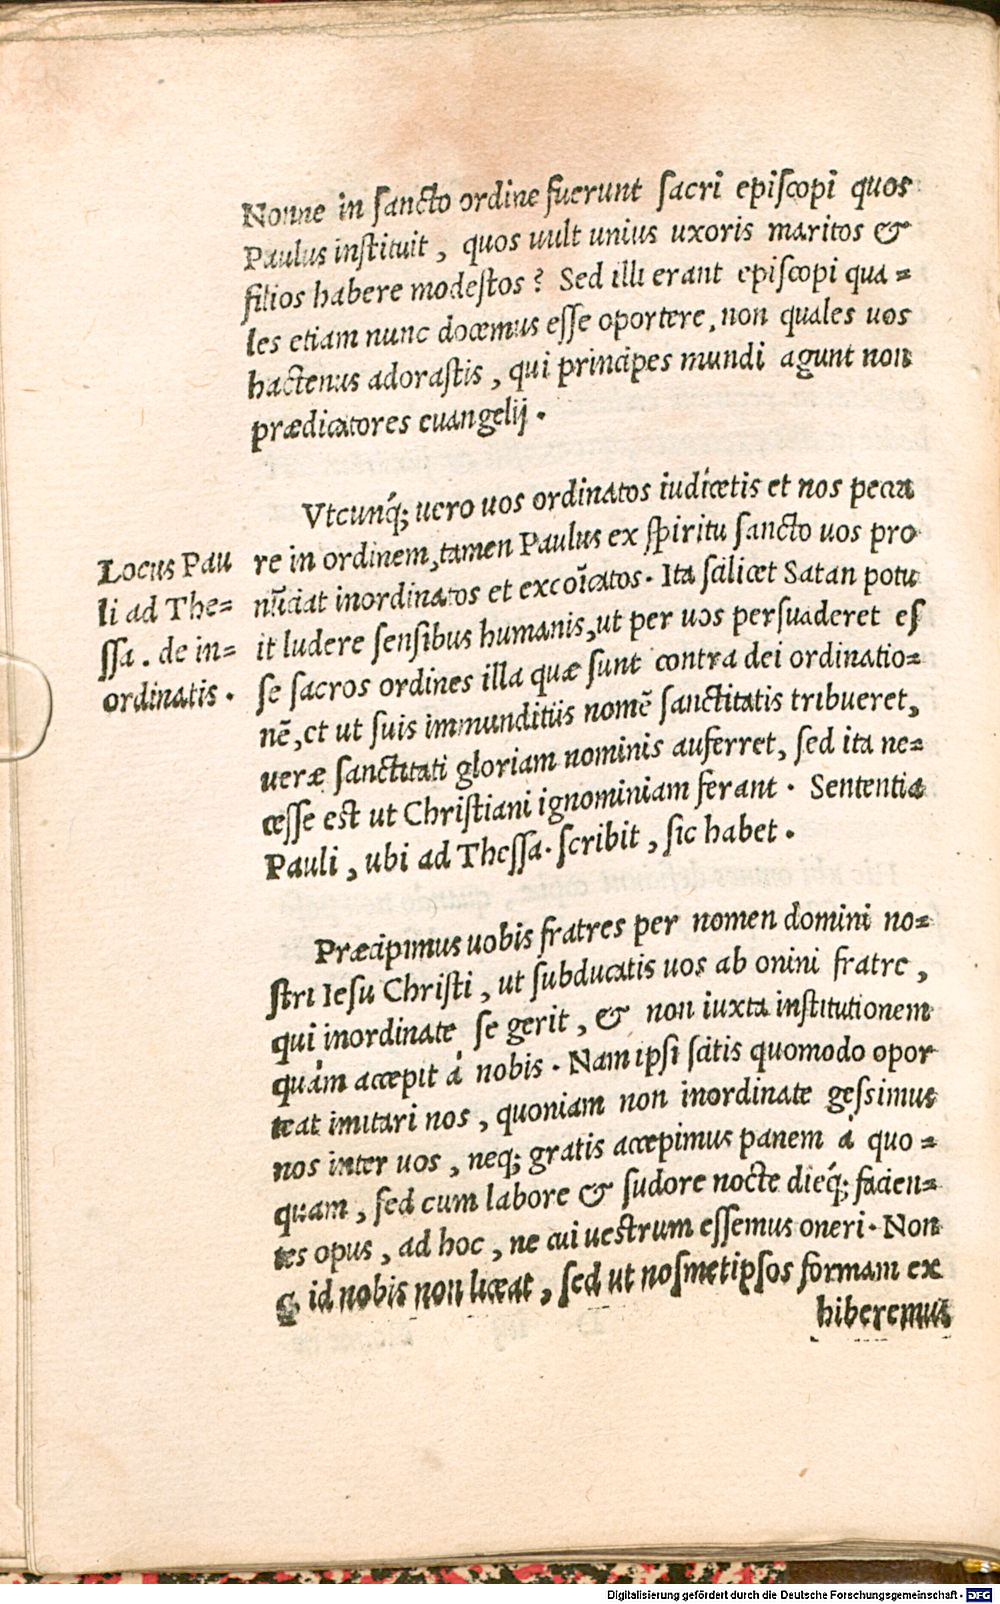 Nonne in ſancto ordine fuerunt ſacri epiſcopi quos
Paulus inſtituit, quos uult unius uxoris maritos &
filios habere modeſtos? Sed illi erant epiſcopi qua=
les etiam nunc docemus eſſe oportere, non quales uos
hactenus adoraſtis, qui principes mundi agunt non
prædicatores euangelij.
Vtcunq́; uero uos ordinatos iudicetis et nos pecca
re in ordinem, tamen Paulus ex ſpiritu ſancto uos pro
nũciat inordinatos et excoĩcatos. Ita ſcilicet Satan potu
it ludere ſenſibus humanis, ut per uos perſuaderet eſ
ſe ſacros ordines illa quæ ſunt contra dei ordinatio=
nẽ, et ut ſuis immunditiis nomẽ ſanctitatis tribueret,
ueræ ſanctitati gloriam nominis auferret, ſed ita ne=
ceſſe eſt ut Chriſtiani ignominiam ferant. Sententia
Pauli, ubi ad Theſſa. ſcribit, ſic habet.
Locus Pau
li ad The=
ſſa. de in=
ordinatis.
Præcipimus uobis fratres per nomen domini no=
ſtri Ieſu Chriſti, ut ſubducatis uos ab omni fratre,
qui inordinate ſe gerit, & non iuxta inſtitutionem
quàm accepit à nobis. Nam ipſi ſcitis quomodo opor
teat imitari nos, quoniam non inordinate geſsimus
nos inter uos, neq; gratis accepimus panem à quo=
quam, ſed cum labore & ſudore nocte dieq́; facien=
tes opus, ad hoc, ne cui ueſtrum eſſemus oneri. Non
q̃ id nobis non liceat, ſed ut noſmetipſos formam ex
hiberemus
Digitalisierung gefördert durch die Deutsche Forschungsgemeinschaft - DFG